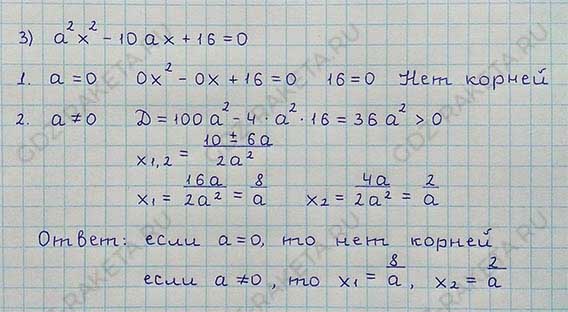 3) a²x² - 10ax + 16 = 0
1. a = 0 0x² - 0x + 16 = 0 16 = 0 Нет корней
2. a ≠ 0 D = 100a² - 4 · a² · 16 = 36a² > 0
x₁,₂ = (10 ± 6a)/(2a²)
x₁ = 16a/2a² = 8/a x₂ = 4a/2a² = 2/a
Ответ: если a = 0, то нет корней
если a ≠ 0, то x₁ = 8/a, x₂ = 2/a
GDZ-RAKETA.RU